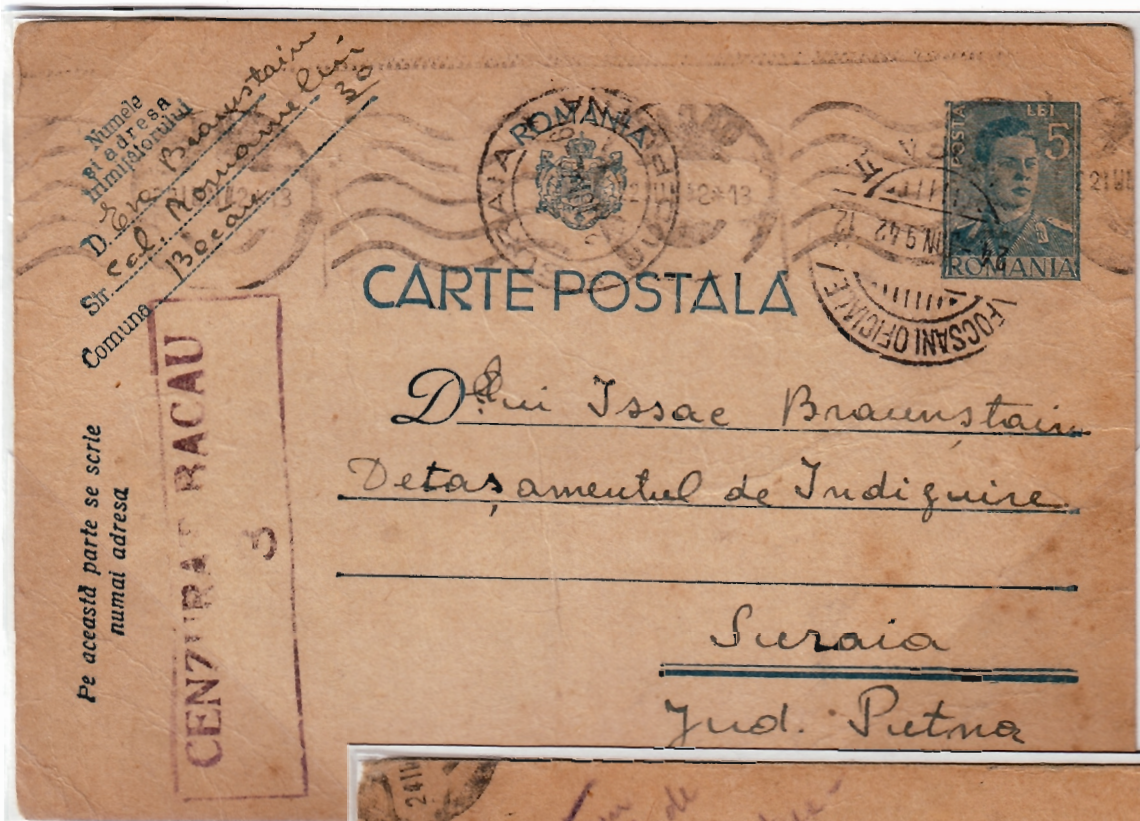 Numele
și adresa
trimițătorului
D. Eva Braunstain
Str. Cal. Romanului
30
Comuna Bacău
Pe această parte se scrie
numai adresa
CENZURA BACAU
3
ROMANIA
CARTE POSTALA
POSTA LEI 5
ROMANIA
21 IUN
42-13
24 IUN. 942 12
FOCSANI OFICIALE
D Lui Issac Braunștain
Detașamentul de Indiguire
Suraia
Jud. Putna
24 IU
de